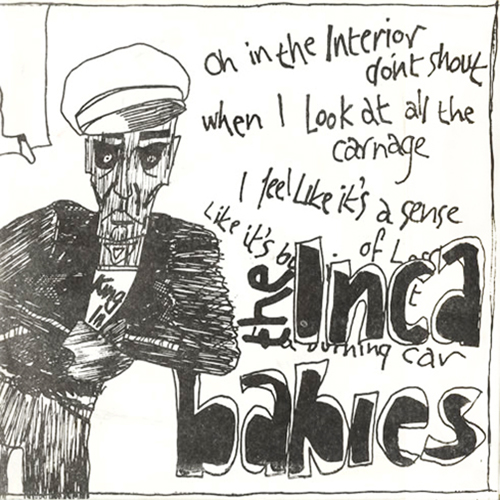 Oh in the Interior
dont shout
when I Look at all the
carnage
I feel Like it's a sense
Like it's
of
the Inca
burning car
babies
King